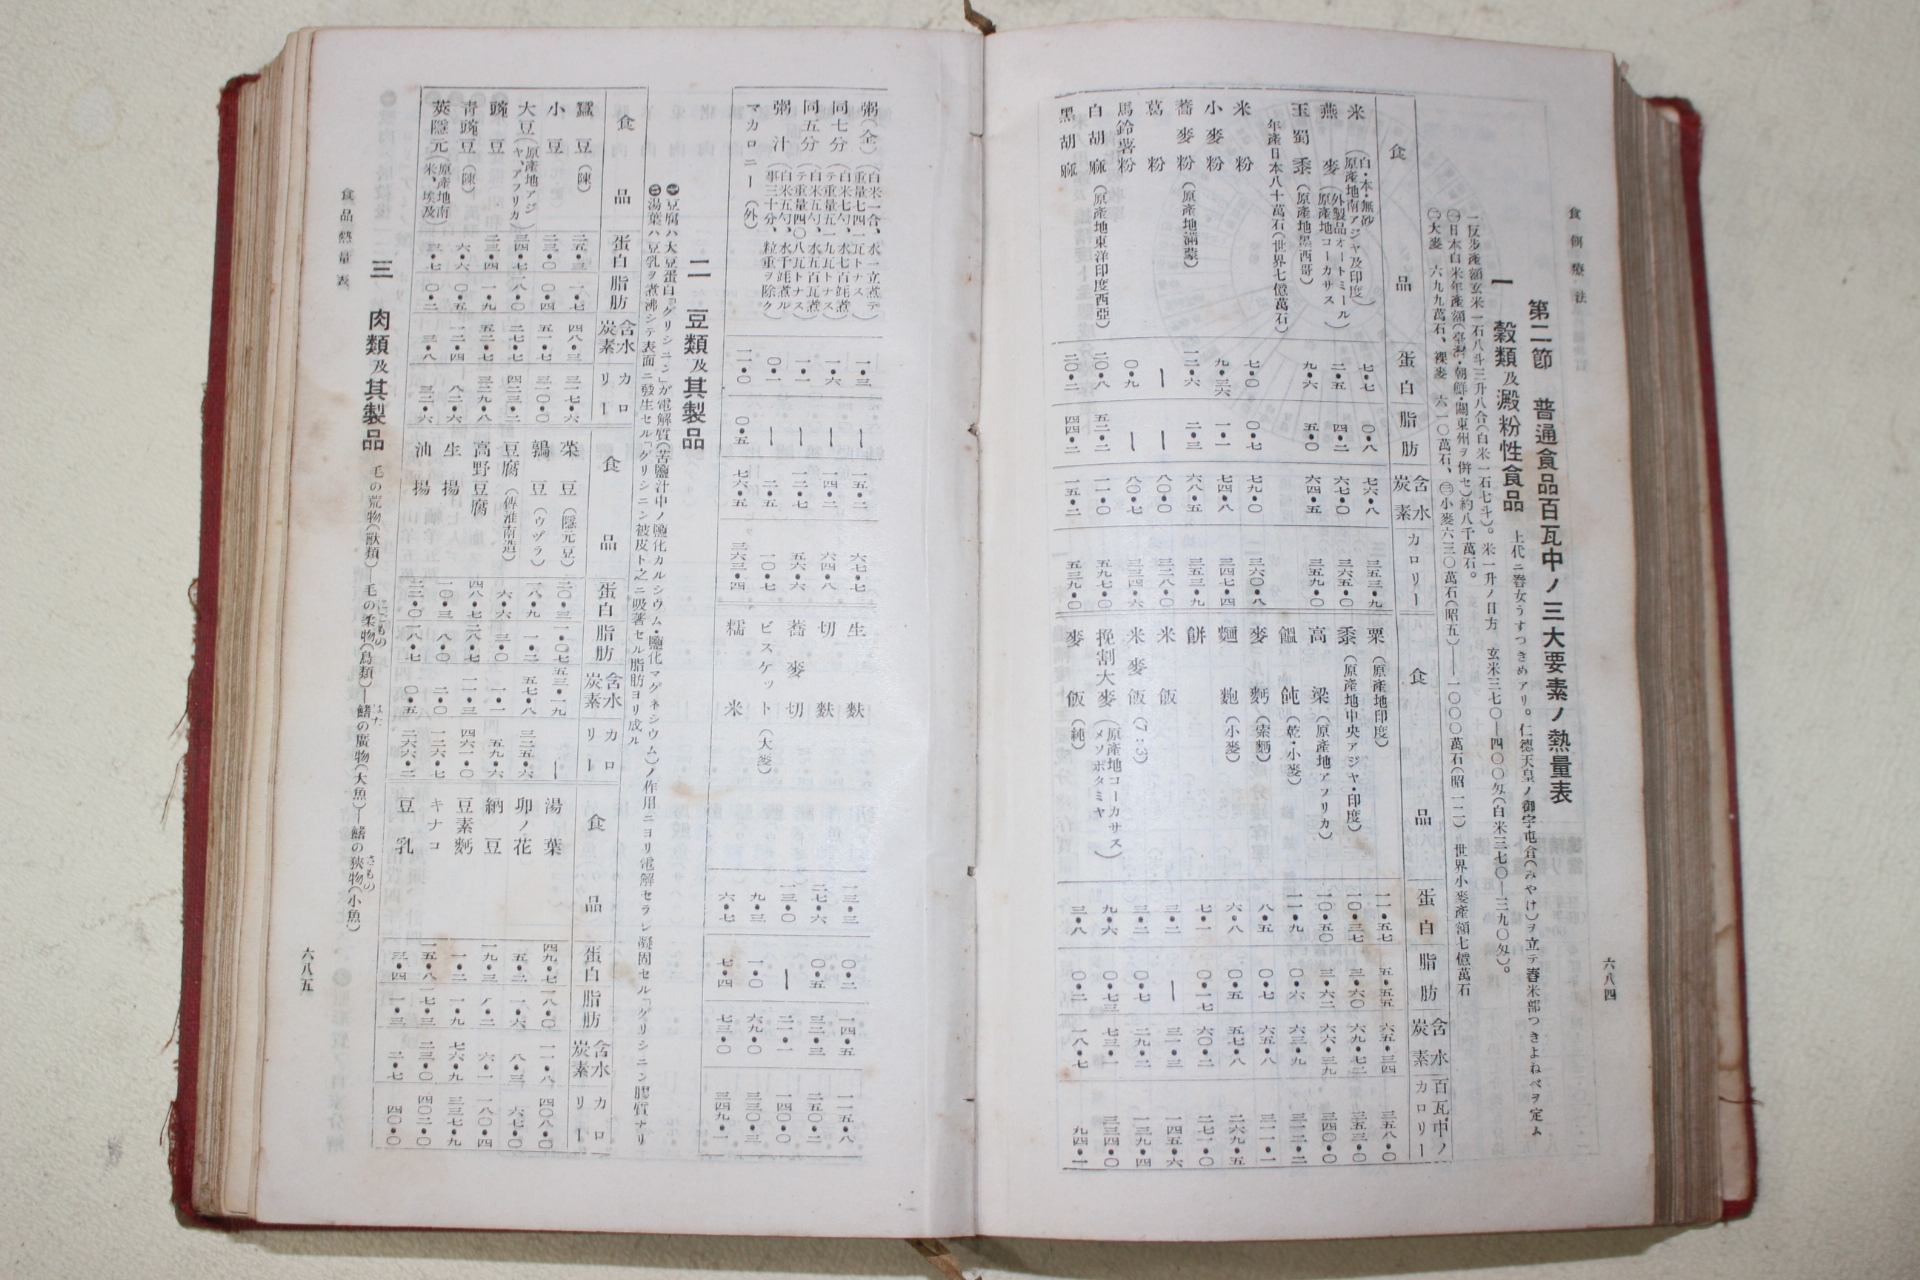 食餌療法
六八四
第二節 普通食品百瓦中ノ三大要素ノ熱量表
一 穀類及澱粉性食品
上代ニ舂女うすつきめアリ。仁德天皇ノ御宇屯倉(みやけ)ヲ立テ舂米部つきよねべヲ定ム
一反步產額玄米一石八斗三升八合(白米一石七斗)。米一升ノ目方 玄米三七〇—四〇〇匁(白米三七〇—三九〇匁)。
㊀日本白米年產額(臺灣・朝鮮・關東州ヲ倂セ)約八千萬石。
㊁大麥 六九九萬石、裸麥 六一〇萬石、㊂小麥六三〇萬石(昭五)—一〇〇〇萬石(昭一二) 世界小麥產額七億萬石
食品 蛋白 脂肪 含水炭素 カロリー
米(白・本・無砂 原產地南アジヤ及印度) 七・七 〇・八 七六・八 三五三・九
燕麥(外製品オートミール 原產地コーカサス) 一二・五 四・二 六七・〇 三六五・〇
玉蜀黍(原產地墨西哥) 九・六 五・〇 六四・五 三五九・〇
年產日本八十萬石(世界七億萬石)
米粉 七・〇 〇・七 七九・〇 三六〇・八
小麥粉 九・三六 一・一 七四・八 三四七・四
蕎麥粉(原產地滿蒙) 一二・六 二・三 六八・五 三五三・九
葛粉 — — 八〇・〇 三二八・〇
馬鈴薯粉 〇・九 — 八〇・七 三三四・六
白胡麻(原產地東洋印度西亞) 二〇・八 五二・二 一一・〇 五九七・〇
黑胡麻 二〇・二 四四・二 一五・二 五三九・〇
食品 蛋白 脂肪 含水炭素 百瓦中ノカロリー
粟(原產地印度) 一一・五七 五・五五 六五・三四 三五八・〇
黍(原產地中央アジヤ・印度) 一〇・三七 三・六〇 六九・七二 三五三・〇
高梁(原產地アフリカ) 一〇・五〇 三・六二 六六・三九 三四〇・〇
饂飩(乾・小麥) 一一・九 〇・六 六三・九 三一三・二
麥麪(索麪) 八・五 〇・七 六五・八 三一一・一
麵麭(小麥) 六・八 〇・五 五七・八 二六九・五
餠 七・一 〇・一七 六〇・二 二七一・〇
米飯 三・二 — 三一・三 一四五・六
米麥飯(7:3) 三・二 〇・七 二九・二 一三九・四
挽割大麥(原產地コーカサス メソポタミヤ) 九・六 〇・七三 七三・一 三三四・〇
麥飯(純) 三・八 〇・二 一八・七 九四・一
粥(全)(白米一合、水一立煮テ重量七四一瓦トナス) 一・三 — 一五・二 六七・七
同七分(白米七勺、水七百竓煮テ重量五一九瓦トナス) 一・六 — 一四・二 六四・八
同五分(白米五勺、水五百瓦煮テ重量四〇八瓦トナス) 一・一 — 一二・七 五六・六
粥汁(白米五勺、水千竓煮ル事三十分、粒重ヲ除ク) 〇・一 — 二・五 一〇・七
マカロニー(外) 一一・〇 〇・五 七六・五 三六三・四
生麩 一三・三 〇・二 一四・五 一一五・八
切麩 二七・六 〇・五 三二・三 二五〇・二
蕎麥切 一三・〇 — 二一・一 一四〇・〇
ビスケット(大麥) 九・三 一・〇 六九・〇 三三〇・三
糯米 六・七 七・四 七三・〇 三四九・一
二 豆類及其製品
㊀豆腐ハ大豆蛋白「グリシニン」が電解質(苦鹽汁中ノ鹽化カルシウム・鹽化マグネシウム)ノ作用ニヨリ電解セラレ凝固セル「グリシニン」膠質ナリ
㊁湯葉ハ豆乳ヲ煮沸シテ表面ニ發生セル「グリシニン」被皮ト之ニ吸著セル脂肪ヨリ成ル
食品 蛋白 脂肪 含水炭素 カロリー
蠶豆(陳) 二五・三 一・七 四八・三 三一七・六
小豆 二三・〇 〇・四 五一・七 三一〇・〇
大豆(原產地アジヤ、アフリカ) 三四・七 一八・〇 二七・七 四二三・二
豌豆 二三・四 一・九 五二・七 三二九・八
靑豌豆(陳) 六・六 〇・五 一二・四 八二・六
莢隱元(原產地南米、埃及) 三・七 〇・二 三・八 三二・六
食品 蛋白 脂肪 含水炭素 カロリー
菜豆(隱元豆) 二〇・三 一・〇七 五三・一九 —
鶉豆(ウヅラ) 一八・九 一・二 五七・八 三二五・六
豆腐(傳淮南造) 六・六 三・〇 一・一 五九・六
高野豆腐 四八・七 二八・七 一一・三 四六一・〇
生揚 一〇・三 八・〇 二・〇 一二六・七
油揚 二二・〇 一八・七 〇・五 二六六・二
食品 蛋白 脂肪 含水炭素 カロリー
湯葉 四九・七 一八・〇 一一・八 四〇八・〇
卯ノ花 五・二 一・六 八・三 六七・〇
納豆 一九・三 八・二 六・一 一八〇・四
豆素麪 一・二 一・九 七六・九 三三七・九
キナコ 一五・八 一七・三 二三・〇 四〇二・〇
豆乳 三・四 一・三 二・七 四〇・〇
三 肉類及其製品
毛の荒物(獸類) 毛の柔物にこもの(鳥類)—鰭はたの廣物(大魚)—鰭の狹物さもの(小魚)
食品熱量表
六八五